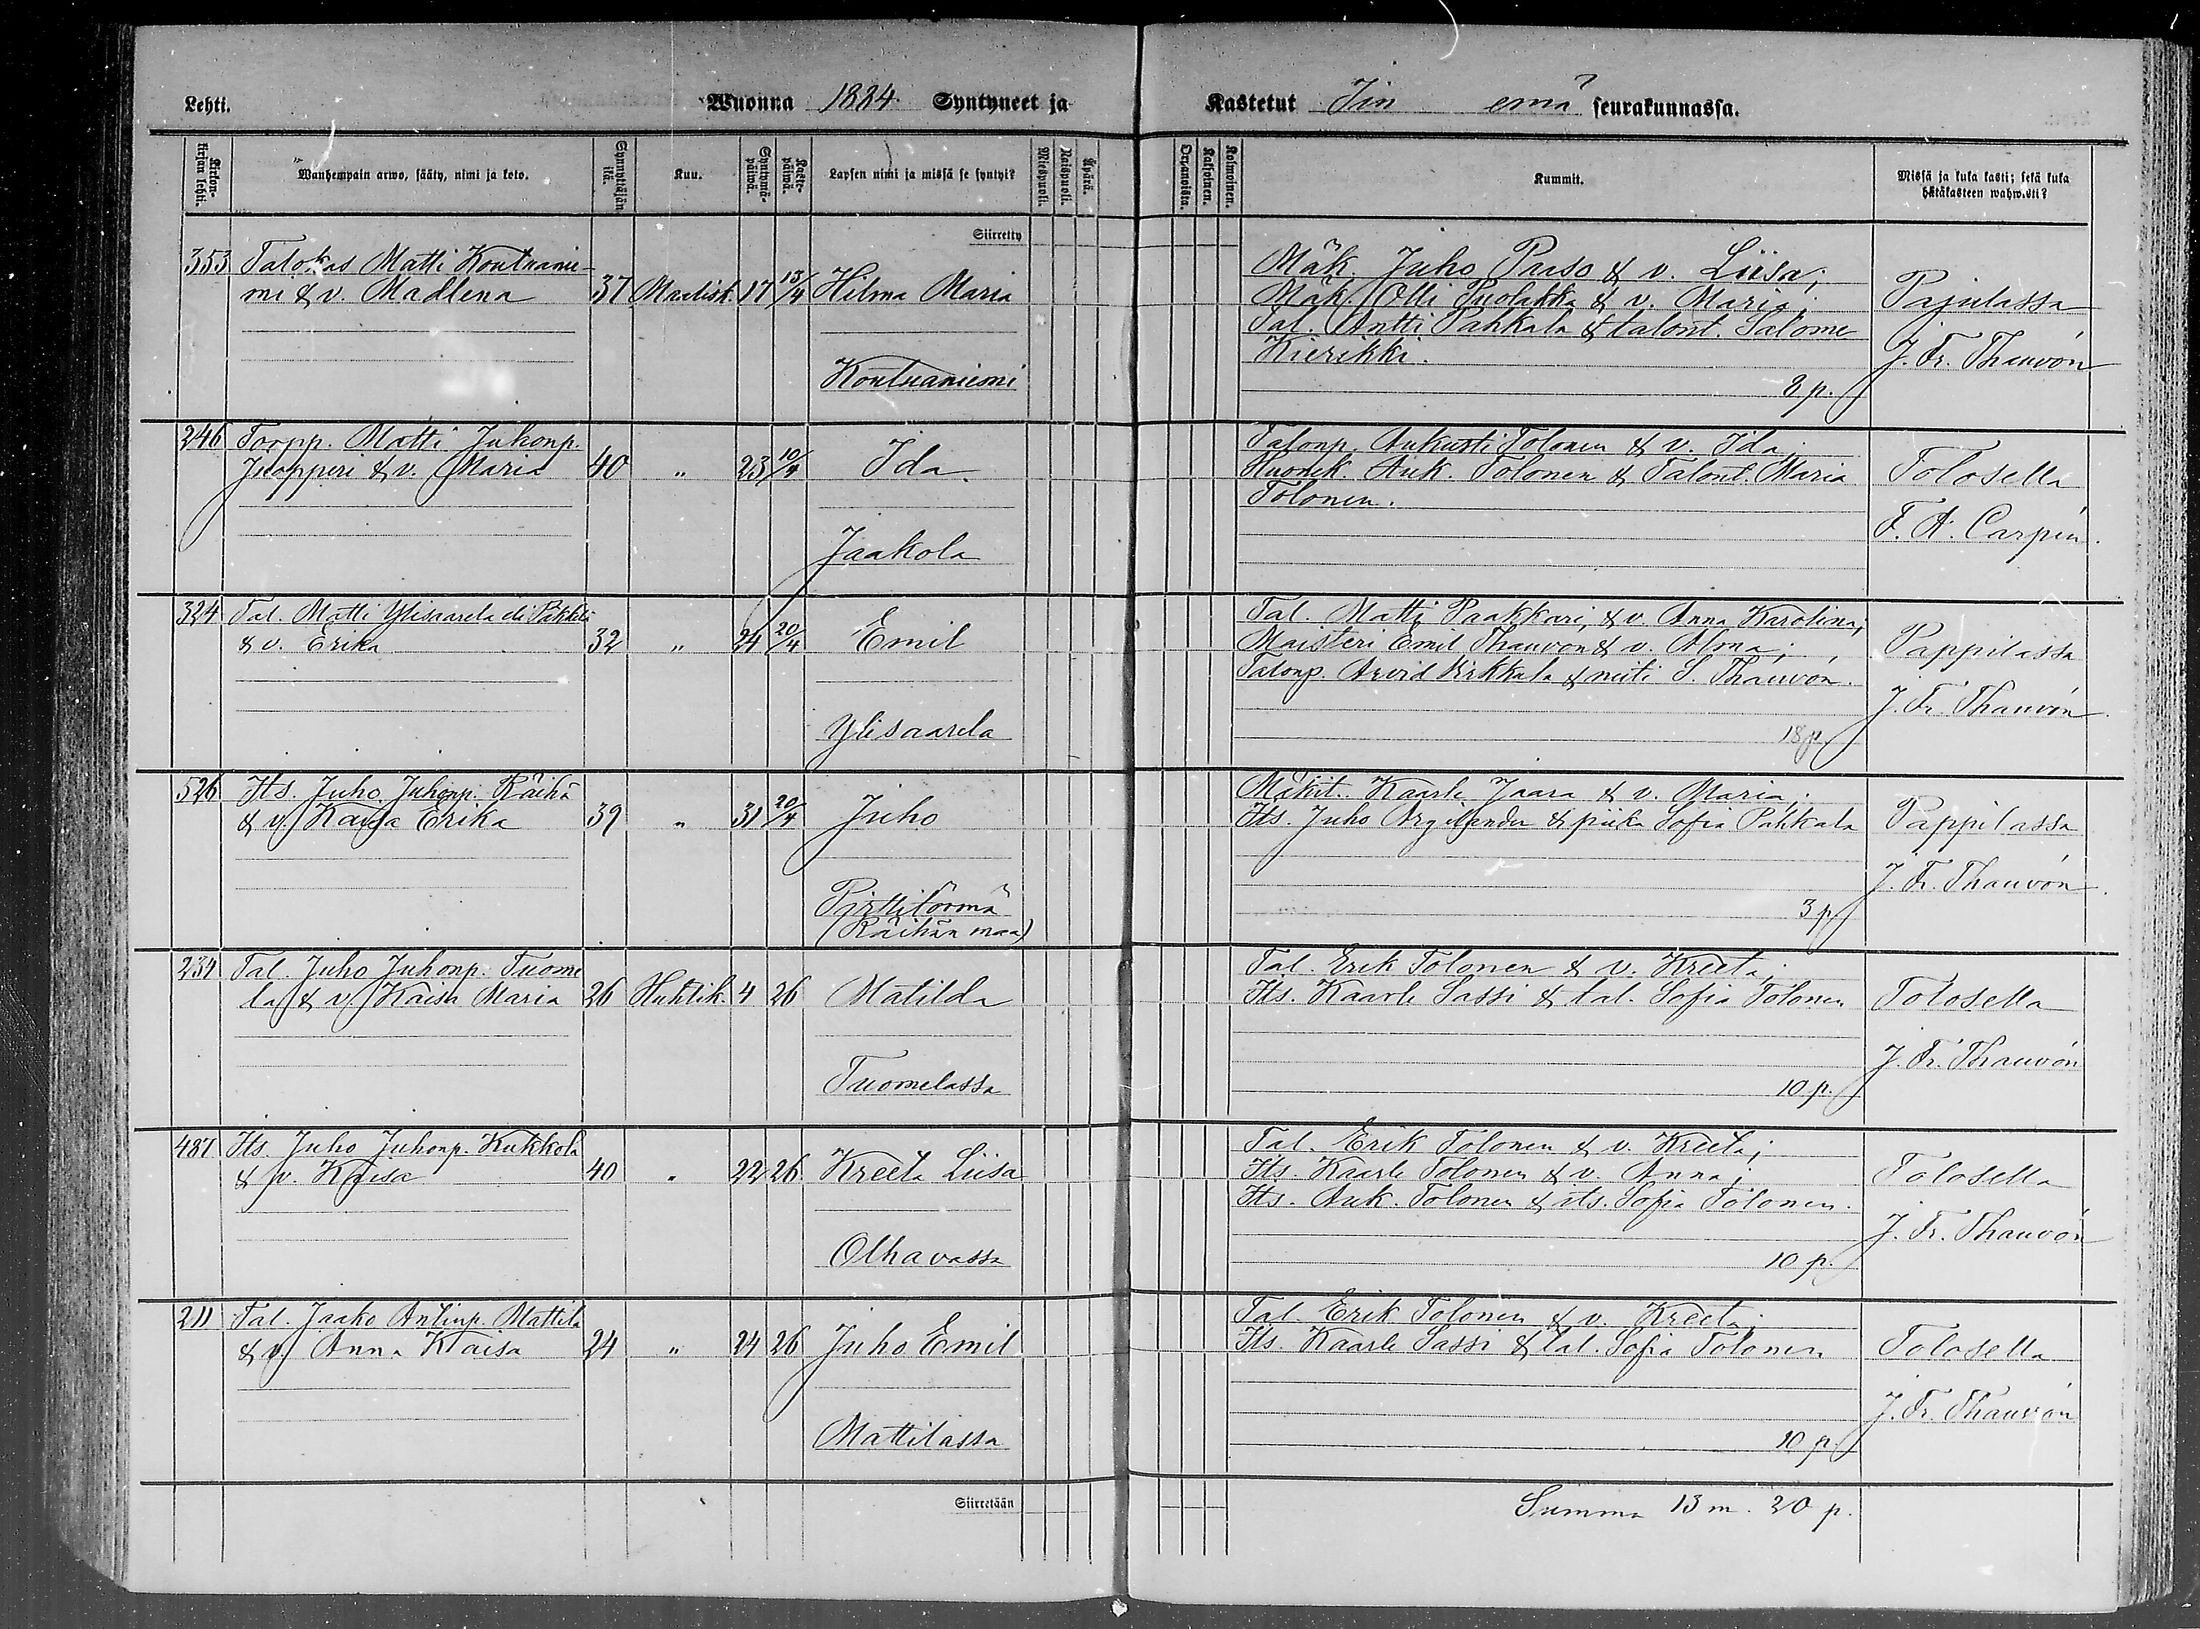 Lehti. Wuonna 1884. Syntyneet ja Kastetut Iin emä seurakunnassa.
Kirkonkirjan lehti. Wanhempain arwo, sääty, nimi ja koto. Synnyttäjän ikä. Kuu. Syntymäpäiwä. Kastepäiwä. Lapsen nimi ja missä se syntyi? Miespuoli. Naispuoli. Äpärä. Kaksoinen. Kolmoinen. Kummit. Missä ja kuka kasti; sekä kuka hätäkasteen wahwisti?
Siirretty
353 Talokas Matti Kontuanie-
mi & v. Madlena 37 Maalisk. 17 13/4 Hilma Maria
Kontuaniemi
Mäk. Juho Paaso & v. Liisa;
Mäk. Olli Puolakka & v. Maria;
Tal. Antti Pahkala & talont. Salome
Kierikki.
8 p.
Pajulassa
J. Fr. Thauvón
246 Torpp. Matti Juhonp.
& v. Maria 40 " 23 10/4 Ida.
Jaakola
Talonp. Aukusti Tolonen & v. Ida
Auk. Tolonen & Talont. Maria
Tolonen.
Tolosella
F. A. Carpén.
324 Tal. Matti Ylisaarela eli Pakkala
& v. Erika 32 " 24 20/4 Emil
Ylisaarela
Tal. Matti Paakkari, & v. Anna Karolina;
Maisteri Emil Thauvón & v. Alma;
Talonp. Arvid Kirkkala & neiti S. Thauvón.
18 p
Pappilassa
J. Fr. Thauvón.
526 Its. Juho Juhonp. Räihä
& v. Kaisa Erika 39 " 31 20/4 Juho
Pirttitörmä
(Räihän maa)
Mäkit. Kaarle Jaara & v. Maria;
Its. Juho & piika Sofia Pahkala
3 p
Pappilassa
J. Fr. Thauvón.
234 Tal. Juho Juhonp. Tuome
la & v. Kaisa Maria 26 Huhtik. 4 26 Matilda
Tuomelassa
Tal. Erik Tolonen & v. Kreeta;
Its. Kaarle Sassi & tal. Sofia Tolonen
10 p.
Tolosella
J. Fr. Thauvón
487 Its. Juho Juhonp. Kukkola
& v. Kaisa 40 " 22 26. Kreeta Liisa
Olhavassa
Tal. Erik Tolonen & v. Kreeta;
Its. Kaarle Tolonen & v. Anna;
Its. Auk. Tolonen & its. Sofia Tolonen.
10 p.
Tolosella
J. Fr. Thauvón
211 Tal. Jaako Antinp. Mattila
& v. Anna Kaisa 24 " 24 26 Juho Emil
Mattilassa
Tal. Erik Tolonen & v. Kreeta;
Its. Kaarle Sassi & tal. Sofia Tolonen
10 p.
Tolosella
J. Fr. Thauvón
Siirretään
Summa 13 m. 20 p.